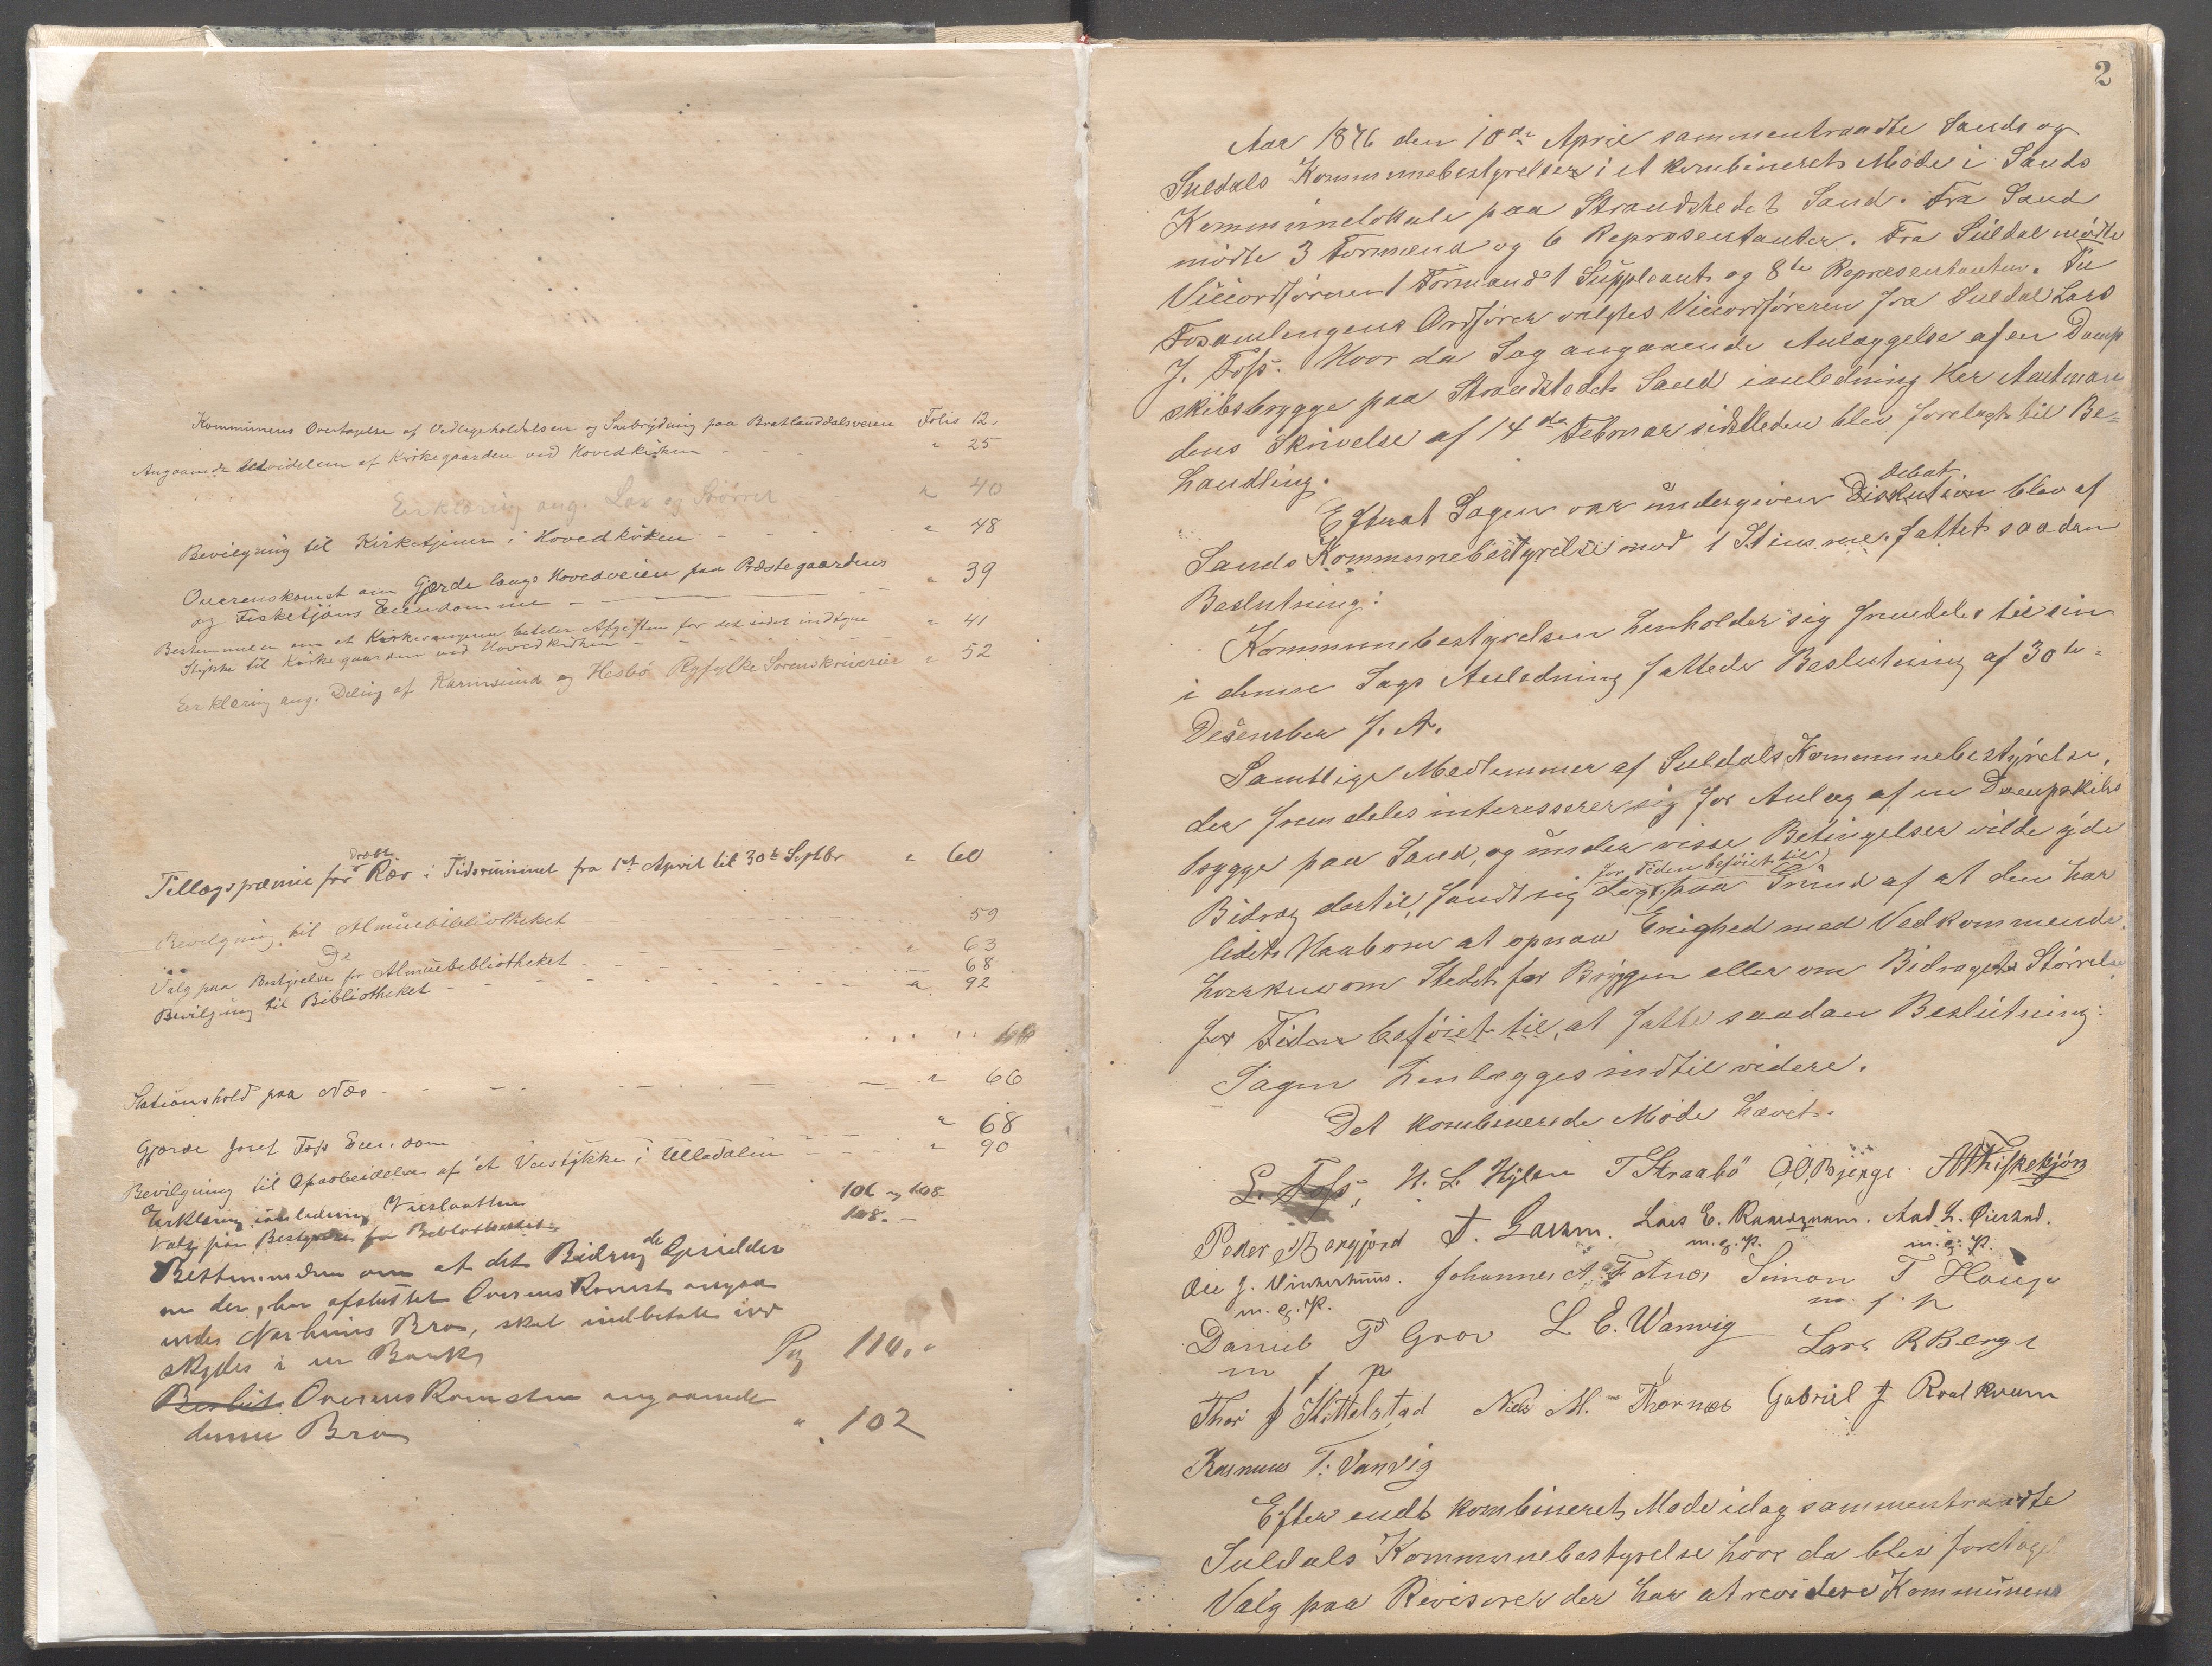 Kommunens Overtagelse af Vedligeholdelsen og Snebrydning paa Bratlanddalsveien Folio 12.
Angaaende Udvidelsen af Kirkegaarden ved Hovedkirken - - - " 25
Erklæring ang. Lax og Størrer " 40
Bevilgning til Kirketjener i Hovedkirken - - - " 48
Overenskomst om Gjerde langs Hovedveien paa Præstegaardens
og Fisketjøns Eiendomme - - - " 39
Bestemmelse om at Kirkevangen betaler Afgiften for det sidst indtagne " 41
Stykke til Kirkegaarden ved Hovedkirken -
Erklæring ang. Deling af Karmsund og Hesbø Ryfylke Sorenskriverier " 52
Dræbt
Tillægspræmie for Ræv i Tidsrummet fra 1st April til 30te Septbr " 60
Bevilgning til Almuebibliotheket 59
Do " 63
Valg paa Bestyrelse for Almuebibliotheket - - - 68
Bevilgning til Bibliotheket - - - " 92
Stationshold paa Næs - - - " 66
Gjerde Josef Foss Eiendom " 68
Bevilgning til Oparbeidelse af et Veistykke i Ulledalen - - - " 90
Erklæring ianledning 106 og 108
Valg paa Bestyrelse for Bibliotheket 108. -
Bestemmelsen om at det Bidrag de Opsidder
ne der, har afsluttet Overenskomst angaa
ende Narhuus Bro, skal indbetale ind
skydes i en Bank Pag 110. "
Beslut. Overenskomsten angaaende
denne Bro " 102
2
Aar 1876 den 10de April sammentraadte Sands og
Suldals Kommunebestyrelser i et kombineret Møde i Sands
Kommunelokale paa Strandstedet Sand. Fra Sand
mødte 3 Formænd og 6 Repræsentanter. Fra Suldal mødte
Viceordføreren 1 Formand 1 Suppleant og 8te Repræsentanter. Til
Forsamlingens Ordfører valgtes Viceordføreren fra Suldal Lars
J. Foss. Hvor da Sag angaaende Anlæggelse af en Damp
skibsbrygge paa Strandstedet Sand ianledning Her Amtman
dens Skrivelse af 14de Februar sidstleden blev forelagt til Be=
handling.
Debat
Efterat Sagen var undergiven Diskution blev af
Sands Kommunebestyrelse mod 1 Stemme fattet saadan
Beslutning:
Kommunebestyrelsen henholder sig fremdeles til sin
i denne Sags Anledning fattede Beslutning af 30te
Desember f. A.
Samtlige Medlemmer af Suldals Kommunebestyrelse,
der fremdeles interesserer sig for Anlæg af en Dampskibs
brygge paa Sand, og under visse Betingelser vilde yde
for Tiden beføiet til
Bidrag dertil, fandt sig dog paa Grund af at den har
lidet Haab om at opnaa Enighed med Vedkommende
hverken om Stedet for Bryggen eller om Bidragets Størrelse
for Tiden beføiet til, at fatte saadan Beslutning:
Sagen henlægges indtil videre.
Det kombinerede Møde hævet.
L. Foss, H. L. Hylen T Straabø O.O. Bjerge. Fiskekjøn
Peder Bergjord T. Larsen. Lars E. . Aad. L. Øiestad.
m. f. P. m. f. P.
Ole J. Vinterhuus. Johannes A. Fatnes Simon T Hauge
m. f. P. m. f. p
Daniel P Grov L E. Wanvig Lars R Berge
m f p
Thor J Kittelstad Niels M. Thornes Gabriel J Roalkvam
Rasmus T. Vanvig
Efter endt kombineret Møde idag sammentraadte
Suldals Kommunebestyrelse hvor da blev foretaget
Valg paa Revisorer der har at revidere Kommunens